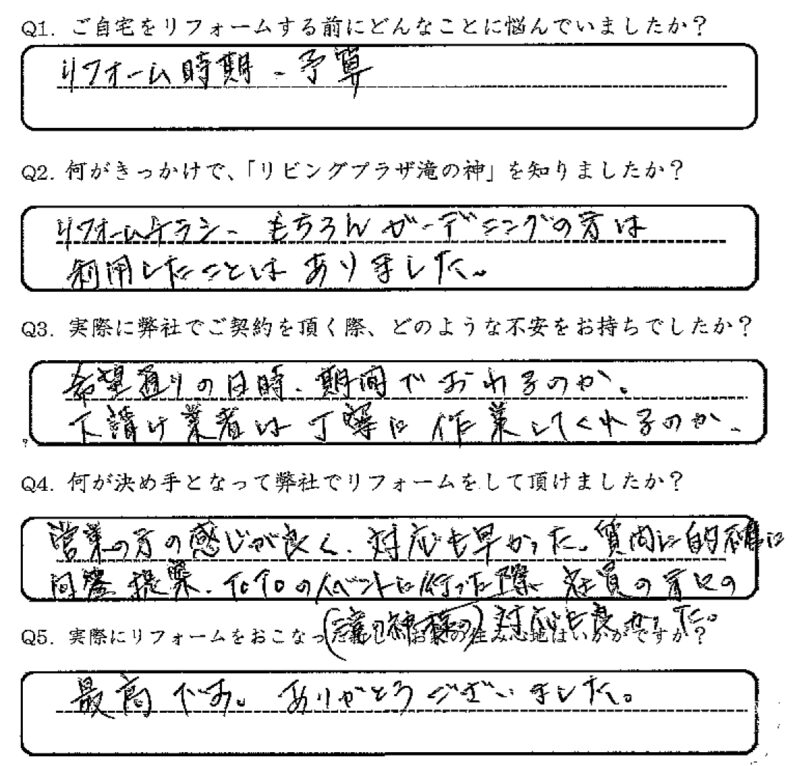 Q1. ご自宅をリフォームする前にどんなことに悩んでいましたか?
リフォーム時期 - 予算
Q2. 何がきっかけで、「リビングプラザ滝の神」を知りましたか?
リフォームチラシ- もちろんガーデニングの方は
利用したことはありました。
Q3. 実際に弊社でご契約を頂く際、どのような不安をお持ちでしたか?
希望通りの日時、期間でおわるのか。
下請け業者は丁寧に作業してくれるのか、
Q4. 何が決め手となって弊社でリフォームをして頂けましたか?
営業の方の感じが良く、対応も早かった。質問に的確に
回答 提案、TOTOのイベントに行った際 社員の方々の
(滝の神様の)対応も良かった。
Q5. 実際にリフォームをおこなった の住み心地はいかがですか?
最高です。ありがとうございました。